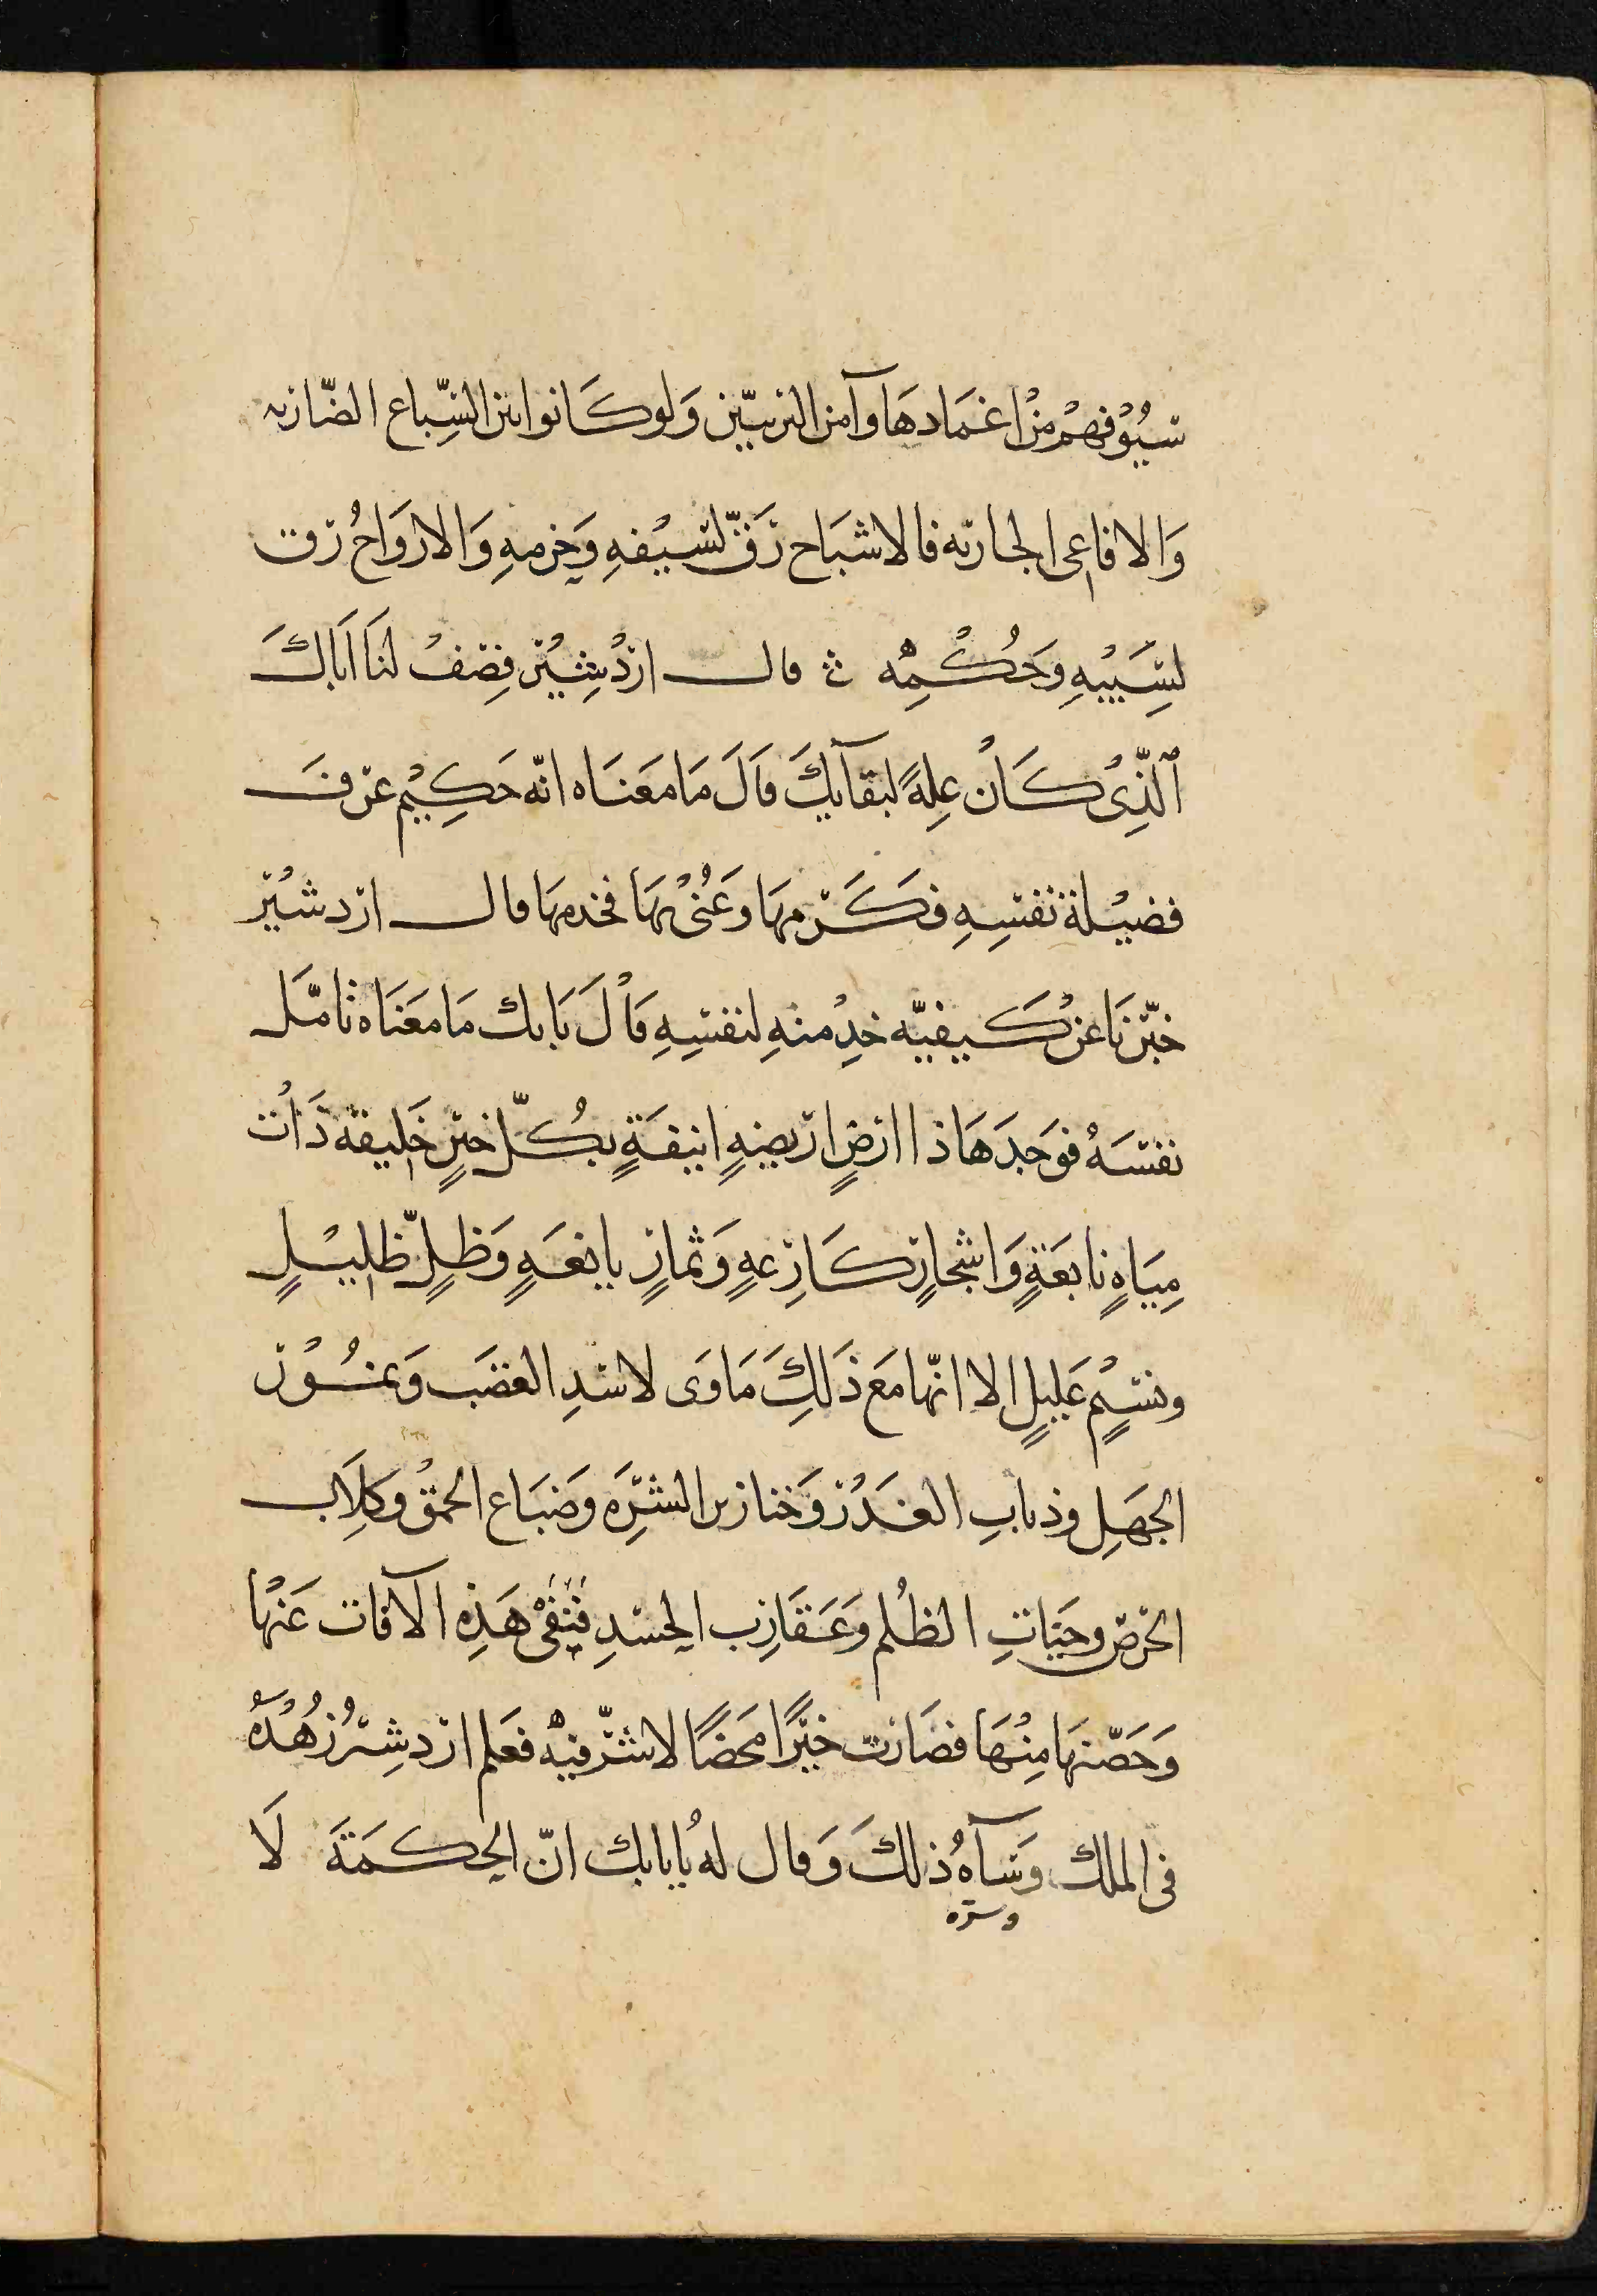 سُيُوْفهمْ مِنْ اغمَادهَا وآمن التربيّين وَلوكَانوا بين السِّباع الضّاريه
وَالافاعى الجاريه فالاشبَاح رَقّ لسَيْفهِ وَحزمهِ وَالارْوَاحُ رق
لسَيْبهِ وَحُكْمِهْ قال اردْشِيْر فصفْ لنَا اَبَاكَ
ٱلّذِىْ كَانْ عِلةً لبقآيكَ قَالَ مَا مَعنَاه انّه حَكِيْم عرفَ
فضيْلة نفسِهِ فكَرّمهَا وَعُنىْ بهَا فخدمهَا قال اردشيْر
خبّرنَا عنْ كَيفيّه خدِمْتهِ لنفسِهِ قاْلَ بَابك مَا مَعْنَاه تامَّل
نفسَهُ فوَجدَهَا ذا ارْضٍ اريضهٍ انيقَةٍ بكُلّ خيرٍ خَليقة ذَاْت
مِيَاهٍ نابعَةٍ وَاشجارٍ كَارِعهٍ وَثمارٍ يانعَهٍ وَظلٍّ ظليْلٍ
ونسيْمٍ عَليلٍ الا انّها مَع ذَلكَ مَاوَى لاسَدِ الغضَب وَنمُوْر
الجهَلِ وذيابِ الغَدْر وَخنازير الشَّرَه وَضبَاع الحمقْ وَكلَاب
الحرْص وحيَّاتِ الظُلم وَعَقَارِب الحسَدِ فنفىْ هَذِه الآفات عَنهْا
وَحَصّنهَا مِنْهَا فصَارَت خيْرًا محَضًا لاشرّ فيْهْ فعَلم اردشِيْر زُهْدهُ
فى الملك وَسَآهُ ذلكَ وَقال لهُ يَا بابك انّ الحكَمَةَ لَا
وسره